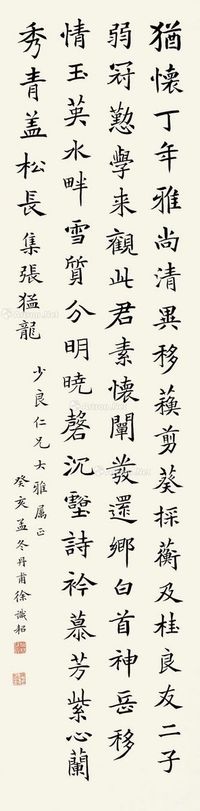 猶懷丁年雅尚清異移蘓剪葵採蘅及桂良友二子
弱冠懃學来觀此君素懷闡發還鄉白首神岳移
情玉英水畔雪質分明曉磬沉壑詩衿慕芳紫心蘭
秀青盖松長 集張猛龍
少良仁兄大雅属正
癸亥孟冬丹甫徐識耜